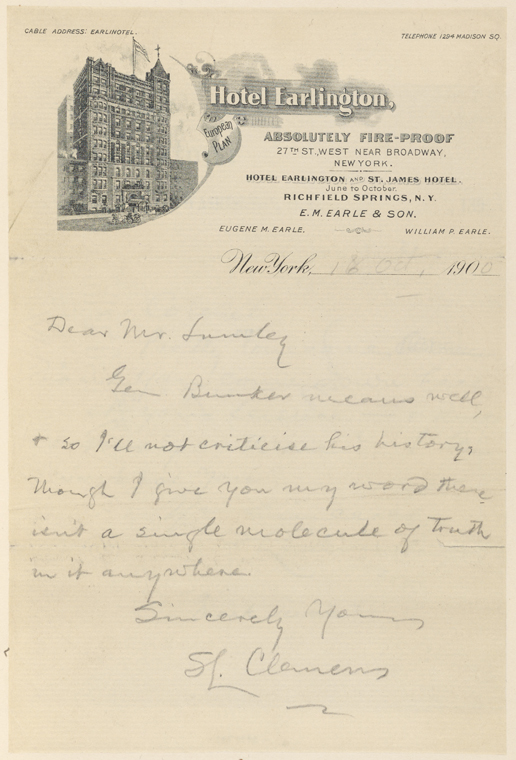 CABLE ADDRESS: EARLINOTEL.
TELEPHONE 1294 MADISON SQ.
Hotel Earlington,
European
PLAN
ABSOLUTELY FIRE-PROOF
27TH ST., WEST NEAR BROADWAY,
NEW YORK.
HOTEL EARLINGTON AND ST. JAMES HOTEL.
June to October.
RICHFIELD SPRINGS, N.Y.
E. M. EARLE & SON.
EUGENE M. EARLE. WILLIAM P. EARLE.
New York, Oct, 1900
Dear Mr.
Gen Bunker means well,
& so I'll not criticise his history,
though I give you my word there
isn't a single molecule of truth
in it anywhere.
Sincerely Yours
SL. Clemens